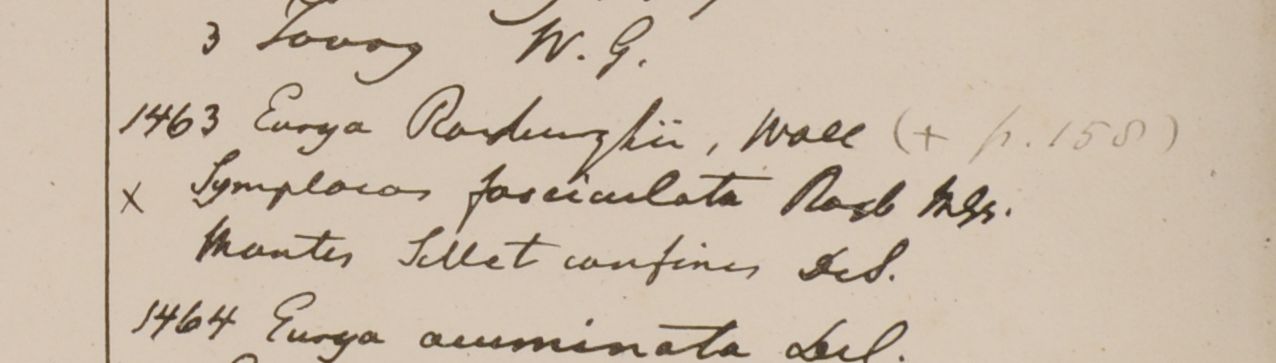 3 Tavoy W. G.
1463 Eurya Roxburghii, Wall (+ p. 158)
x Symplocos fasciculata Roxb Mss.
Montes Sillet confines DeS.
1464 Eurya acuminata